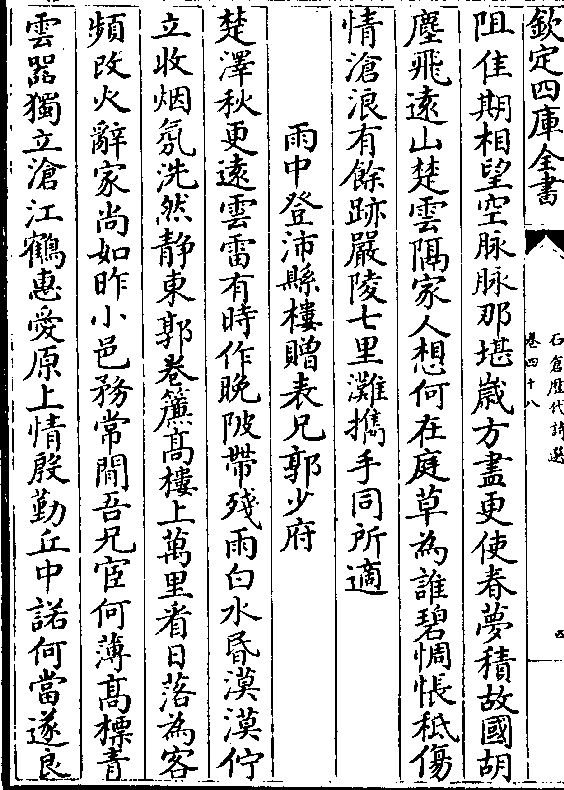 欽定四庫全書
石倉歴代詩選
卷四十八
四
阻佳期相望空脉脉那堪歲方盡更使春夢積故國胡
塵飛遠山楚雲隔家人想何在庭草為誰碧惆悵秪傷
情滄浪有餘跡嚴陵七里灘擕手同所適
雨中登沛縣樓贈表兄郭少府
楚澤秋更遠雲雷有時作晩陂帶殘雨白水昏漠漠佇
立收烟氛洗然静東郭卷簾髙樓上萬里看日落為客
頻改火辭家尚如昨小邑務常閒吾兄宦何薄髙標青
雲器獨立滄江鶴惠愛原上情殷勤丘中諾何當遂良